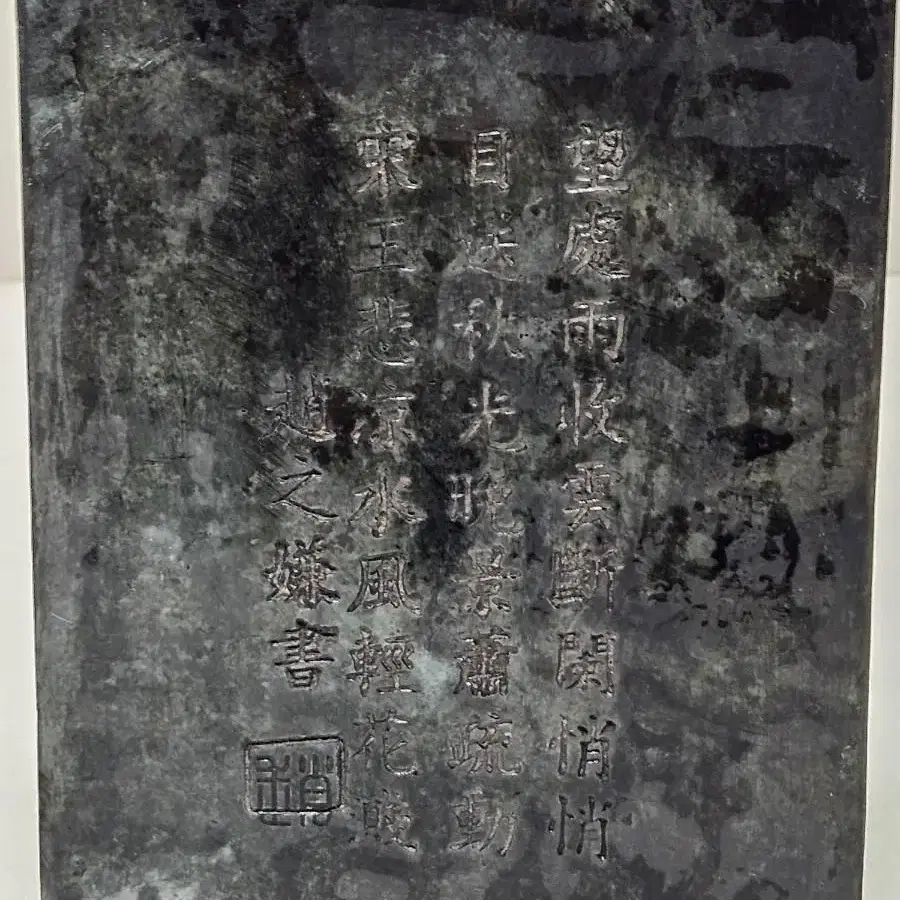 望處雨收雲斷闌悄悄
目送秋光晚景蕭疏動
宋王悲涼水風輕花
趙之嫌書